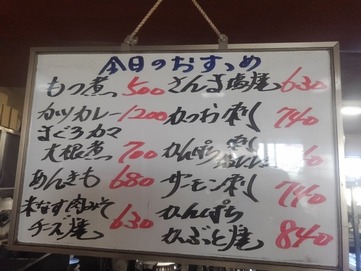 今日のおすゝめ
もつ煮 500
カツカレー 1200
まぐろカマ
大根煮 700
あんきも 680
米なす肉みそ
チーズ焼 630
さんま塩焼 630
かつお刺 740
かんぱち刺
サーモン刺 740
かんぱち
かぶと焼 840